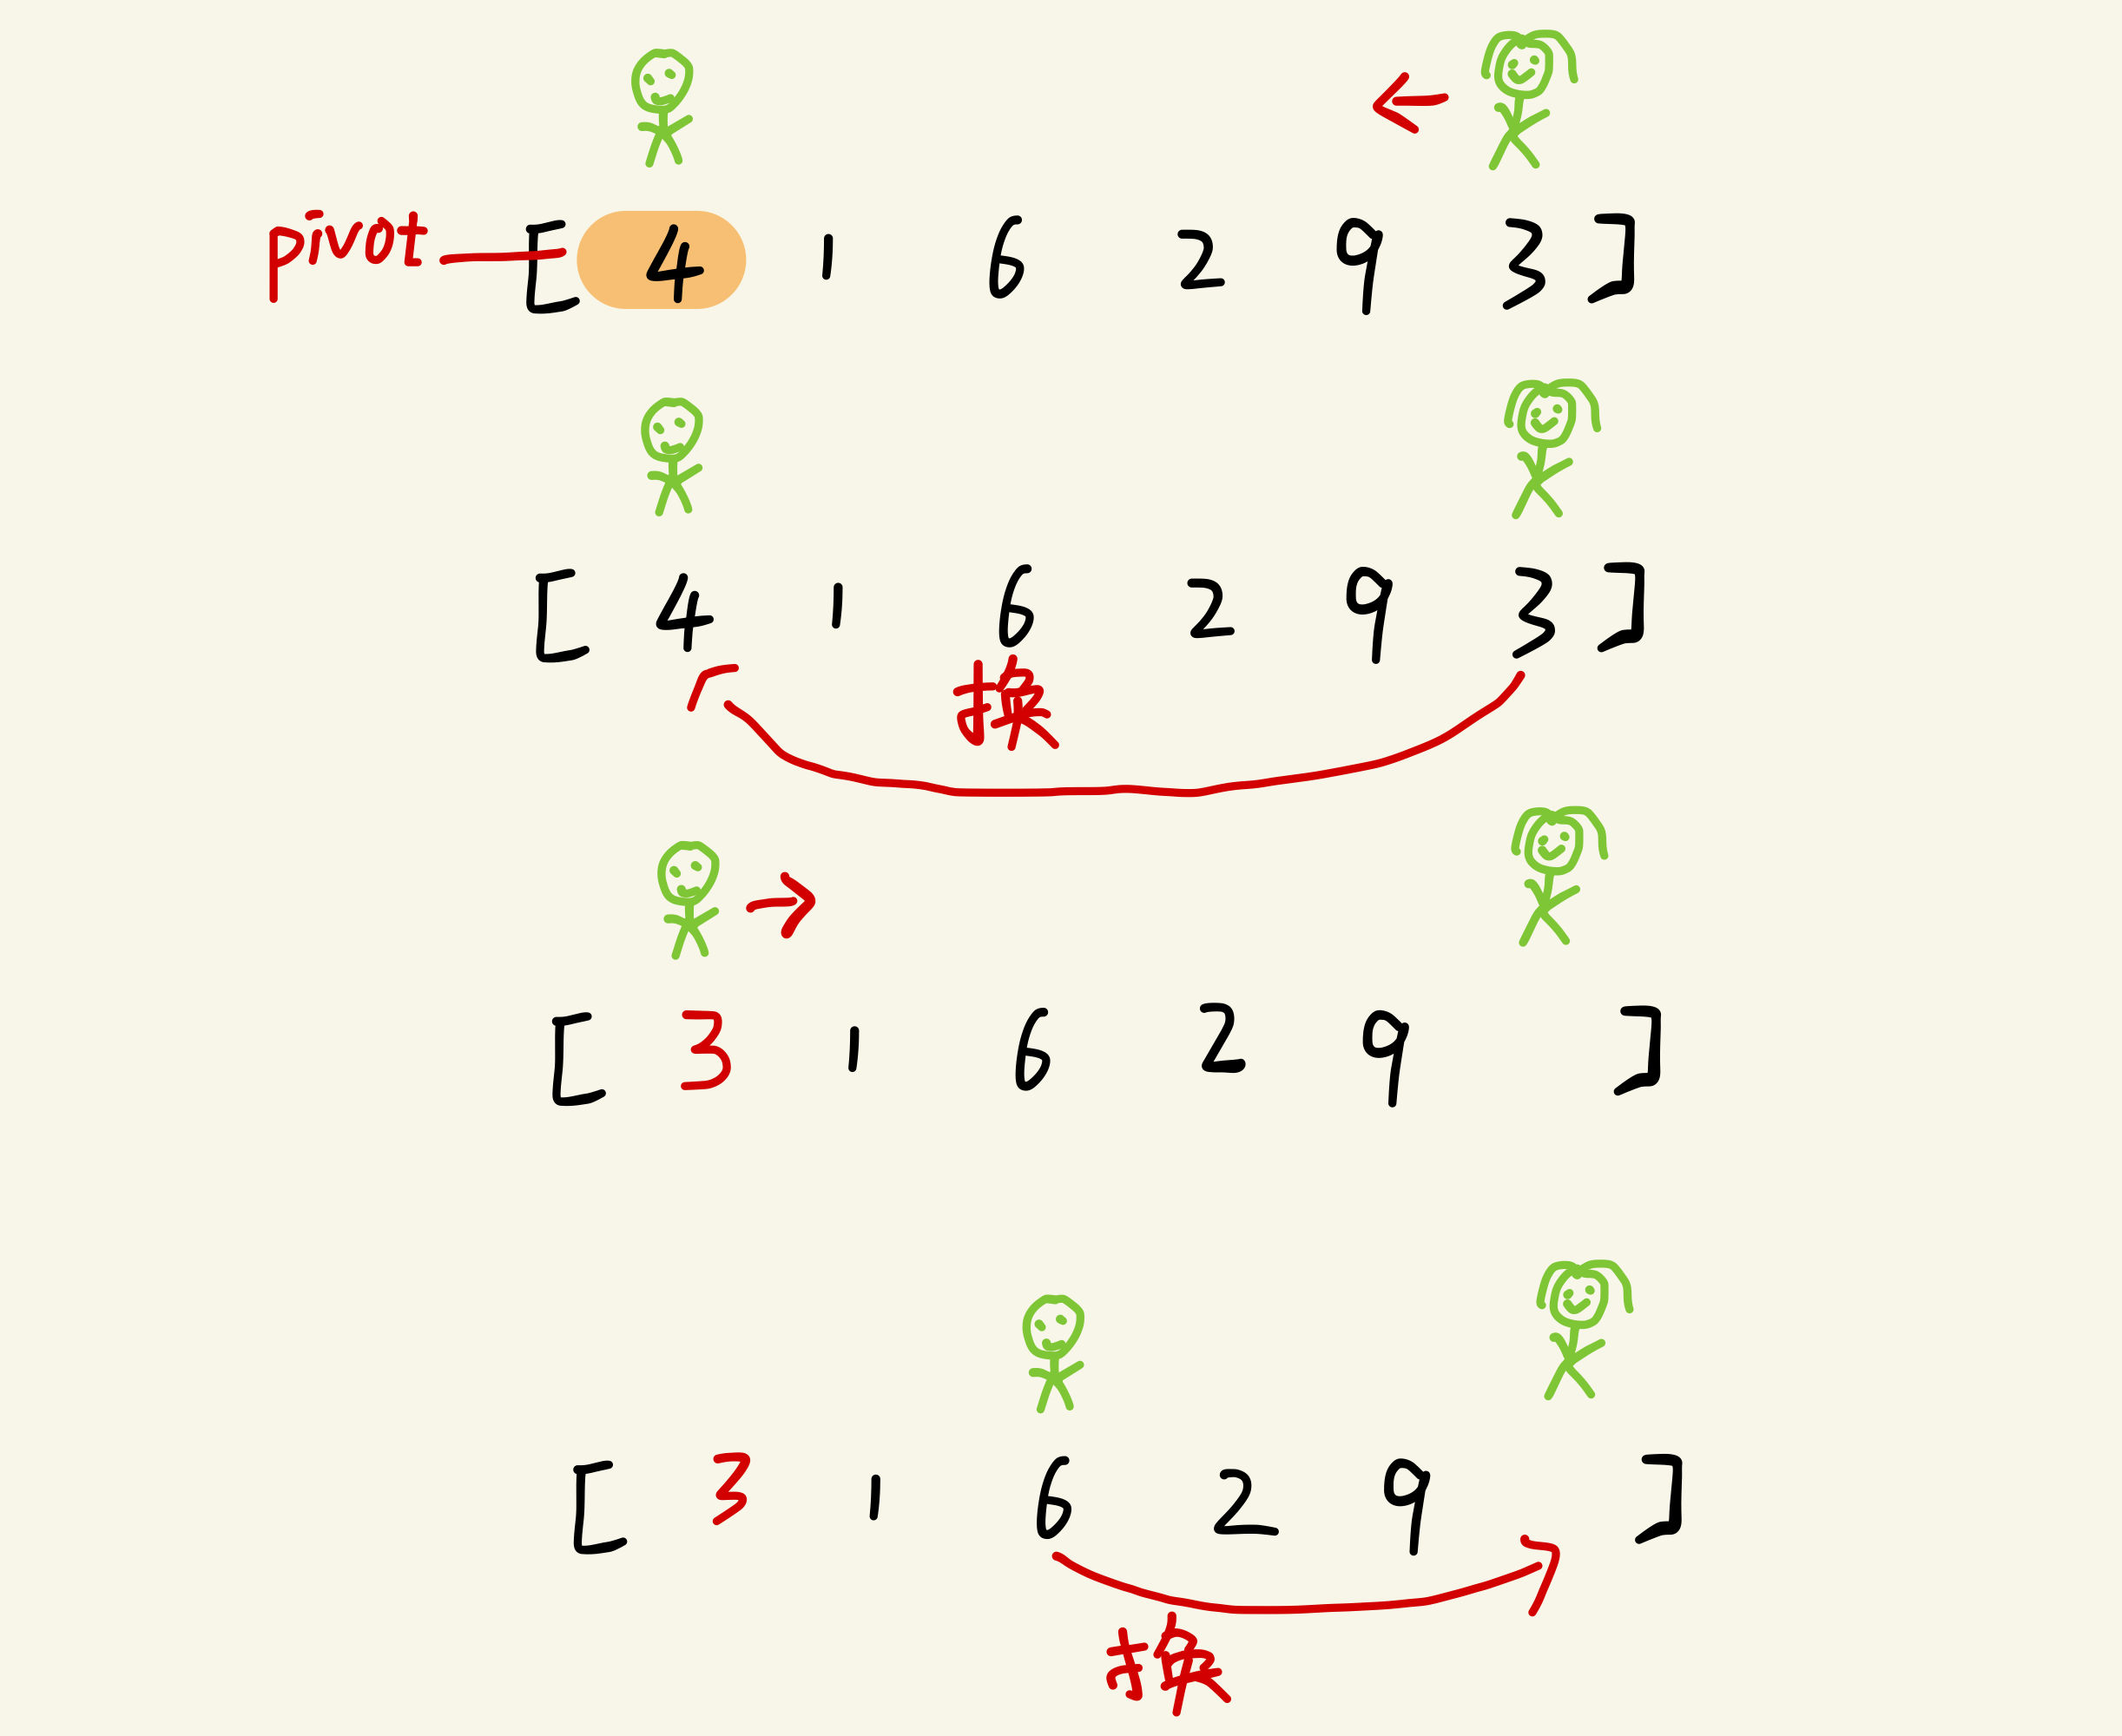 pivot [ 4 1 6 2 9 3 ]
[ 4 1 6 2 9 3 ]
换
[ 3 1 6 2 9 ]
[ 3 1 6 2 9 ]
换